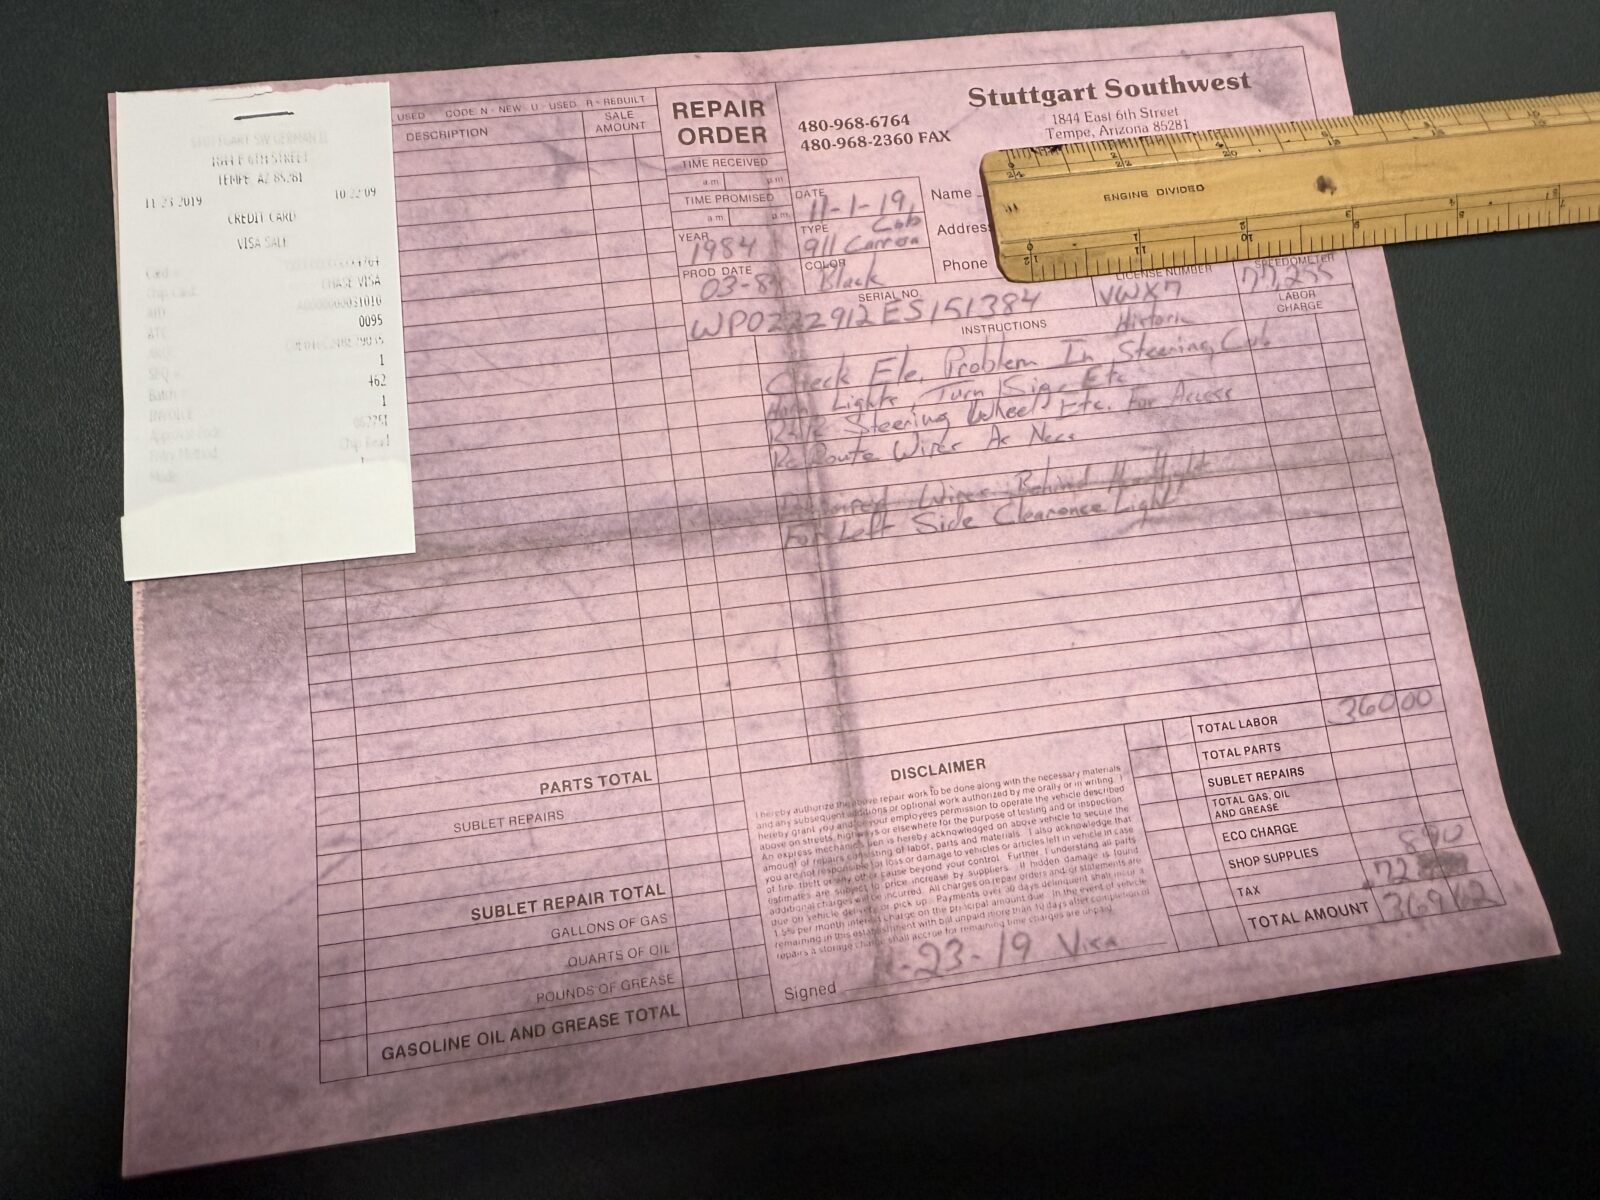 STUTTGART SW GERMAN
1844 E 6TH STREET
TEMPE AZ 85281
11 23 2019 10:22:09
CREDIT CARD
VISA SALE
Card #
Chip Card: CHASE VISA
AID:
ATC: 0095
SEQ #: 1
Batch #: 462
INVOICE 1
Approval Code:
Entry Method: Chip Read
Mode:
USED CODE N - NEW U - USED R - REBUILT
DESCRIPTION
SALE
AMOUNT
PARTS TOTAL
SUBLET REPAIRS
SUBLET REPAIR TOTAL
GALLONS OF GAS
QUARTS OF OIL
POUNDS OF GREASE
GASOLINE OIL AND GREASE TOTAL
REPAIR
ORDER
TIME RECEIVED
a.m. p.m.
TIME PROMISED
a.m. p.m.
YEAR
1984
PROD DATE
480-968-6764
480-968-2360 FAX
Stuttgart Southwest
1844 East 6th Street
Tempe, Arizona 85281
DATE
11-1-19
TYPE Cab
911 Carrera
COLOR
Black
Name
Address
Phone
ENGINE DIVIDED
SERIAL NO.
LICENSE NUMBER
VWX7
Historic
SPEEDOMETER
77,255
INSTRUCTIONS
LABOR
CHARGE
Check Ele. Problem In Steering
Lights, Turn Sig. Etc
R&R Steering Wheel Etc. For Access
Re Route Wires As Necc
Wires Behind Headlight
For Left Side Clearance Light
DISCLAIMER
I hereby authorize the above repair work to be done along with the necessary materials
and any subsequent additions or optional work authorized by me orally or in writing. I
hereby grant you and or your employees permission to operate the vehicle described
above on streets, highways or elsewhere for the purpose of testing and or inspection.
An express mechanics lien is hereby acknowledged on above vehicle to secure the
amount of repairs consisting of labor, parts and materials. I also acknowledge that
you are not responsible for loss or damage to vehicles or articles left in vehicle in case
of fire, theft or any other cause beyond your control. Further, I understand all party
estimates are subject to price increase by suppliers. If hidden damage is found
additional charges will be incurred. All charges on repair orders and or statements are
due on vehicle delivery or pick up. Payments over 30 days delinquent shall incur a
1.5% per month interest charge on the principal amount due. In the event of vehicle
remaining in this establishment with bill unpaid more than 10 days after completion of
repairs a storage charge shall accrue for remaining time charges are unpaid.
Signed 11-23-19 Visa
TOTAL LABOR 360 00
TOTAL PARTS
SUBLET REPAIRS
TOTAL GAS, OIL
AND GREASE
ECO CHARGE
SHOP SUPPLIES 8 90
TAX 72
TOTAL AMOUNT 369 62